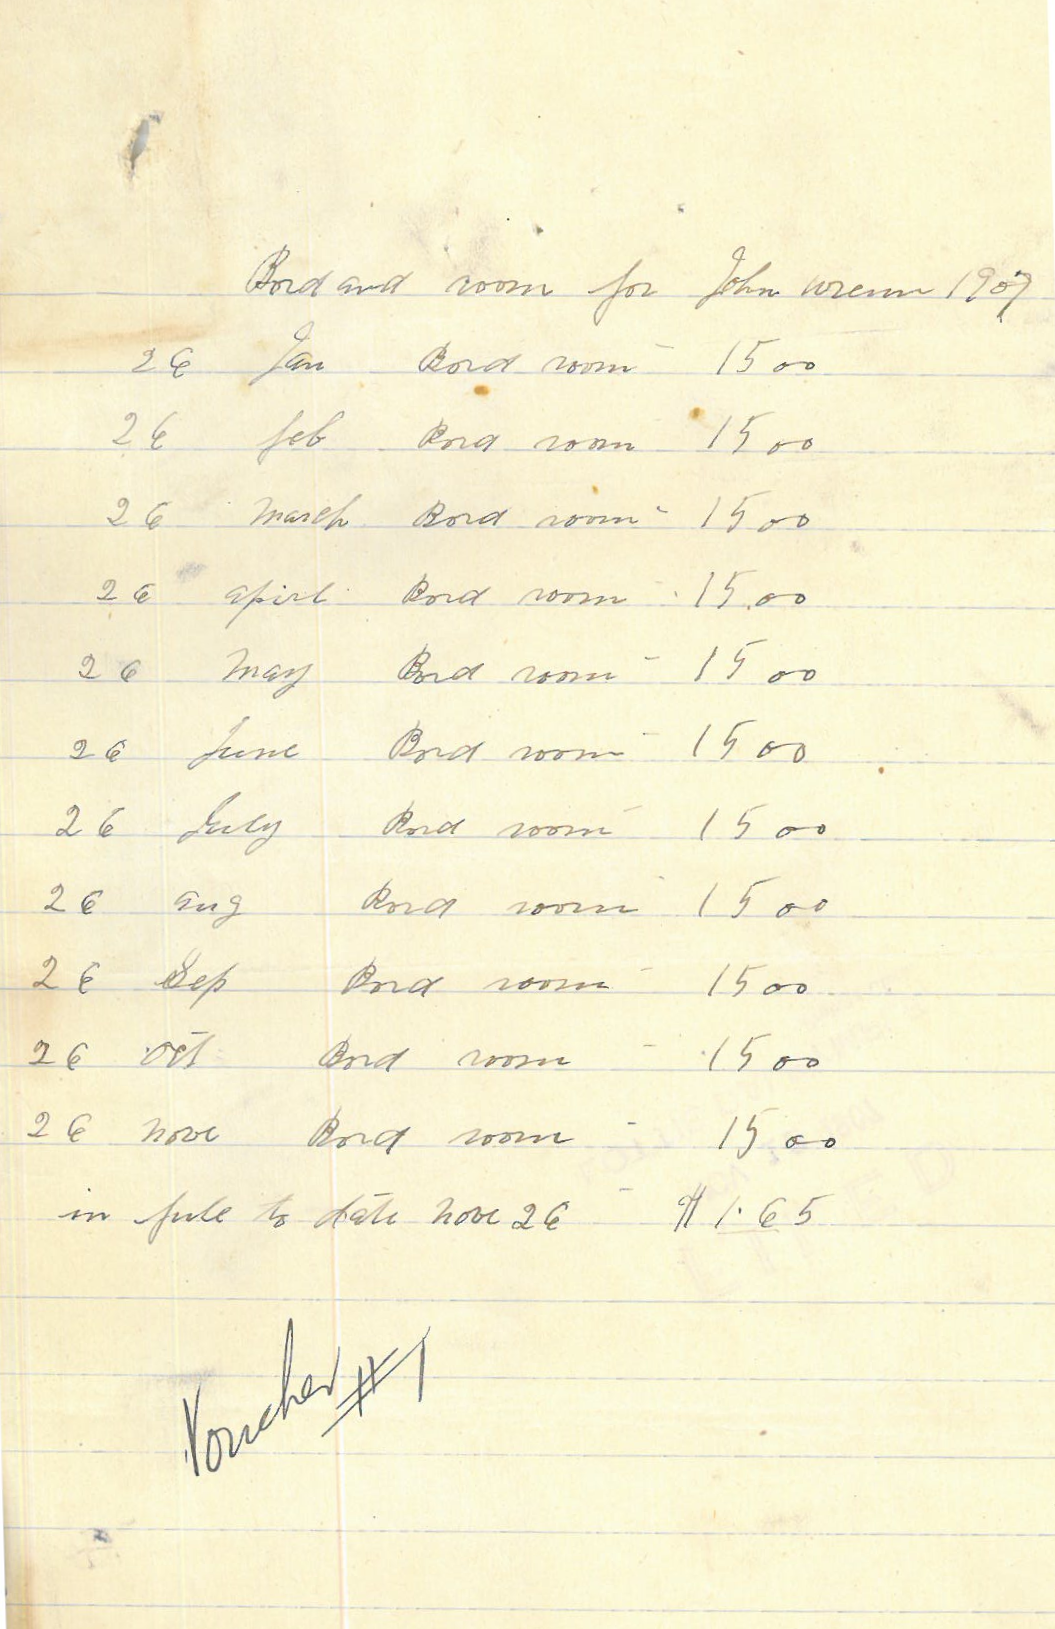 Bord and room for John wrenn 1907
26 Jan Bord room - 15 00
26 feb Bord room 15 00
26 march Bord room - 15 00
26 apirl Bord room 15.00
26 may Bord room - 15 00
26 June Bord room - 15 00
26 July Bord room - 15 00
26 aug Bord room - 15 00
26 Sep Bord room - 15 00
26 Oct Bord room - 15 00
26 nove Bord room - 15 00
in fule to date nove 26 - $1.65
Voucher #1